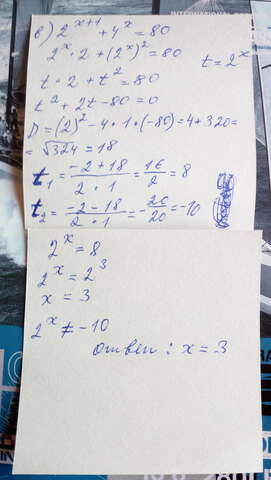 в) 2^(x+1) + 4^x = 80
2^x · 2 + (2^x)^2 = 80
t = 2^x
t · 2 + t^2 = 80
t^2 + 2t - 80 = 0
D = (2)^2 - 4 · 1 · (-80) = 4 + 320 =
= √324 = 18
t₁ = (-2 + 18)/(2 · 1) = 16/2 = 8
t₂ = (-2 - 18)/(2 · 1) = -20/20 = -10
2^x = 8
2^x = 2^3
x = 3
2^x ≠ -10
ответ : x = 3